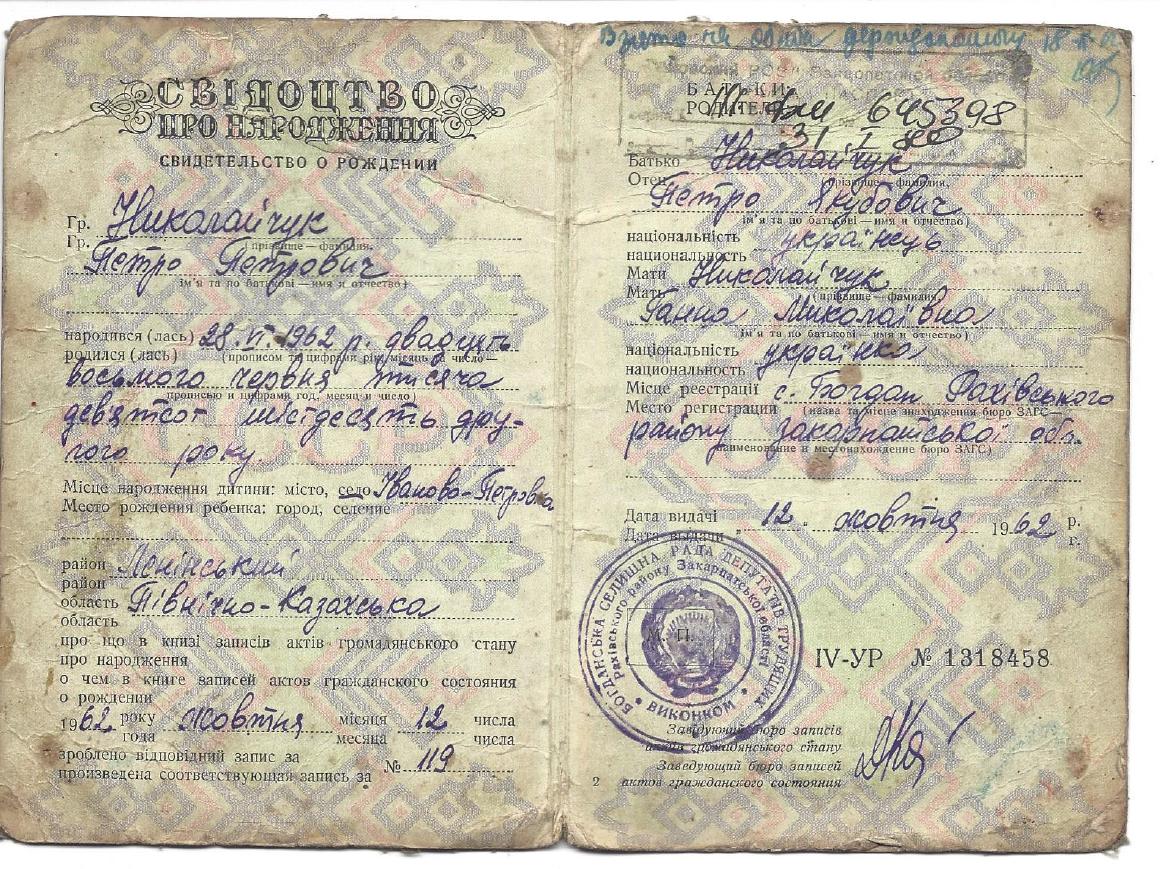 СВІДОЦТВО
ПРО НАРОДЖЕННЯ
СВИДЕТЕЛЬСТВО О РОЖДЕНИИ
Гр. Николайчук
Гр. (прізвище — фамилия,
Петро Петрович
ім'я та по батькові — имя и отчество)
народився (лась) 28. VI. 1962 р. двадцять
родился (лась) (прописом та цифрами рік, місяць і число —
восьмого червня тисяча
прописью и цифрами год, месяц и число)
девятсот шістдесять дру-
гого року
СССР
Місце народження дитини: місто, село Іваново-Петровка
Место рождения ребенка: город, селение
район Ленінський
район
область Північно-Казахська
область
про що в книзі записів актів громадянського стану
про народження
о чем в книге записей актов гражданского состояния
о рождении
1962 року жовтня місяця 12 числа
года месяца числа
зроблено відповідний запис за
произведена соответствующая запись за № 119
Взято на облік 18
БАТЬКИ
РОДИТЕЛИ 645398
31 I 80
Батько Николайчук
Отец прізвище — фамилия,
Петро Якубович
ім'я та по батькові — имя и отчество)
національність українець
национальность
Мати Николайчук
Мать (прізвище — фамилия,
Ганна Миколаївна
ім'я та по батькові — имя и отчество)
національність українка
национальность
Місце реєстрації с. Богдан Рахівського
Место регистрации (назва та місце знаходження бюро ЗАГС —
району Закарпатської обл.
наименование и местонахождение бюро ЗАГС)
Дата видачі „ 12 „ жовтня 1962 р.
Дата выдачи г.
БОГДАНСЬКА СЕЛИЩНА РАДА ДЕПУТАТІВ ТРУДЯЩИХ
Рахівського району Закарпатської області
ВИКОНКОМ
М. П.
IV-УР № 1318458
Завідуючий бюро записів
актів громадянського стану
Заведующий бюро записей
2 актов гражданского состояния